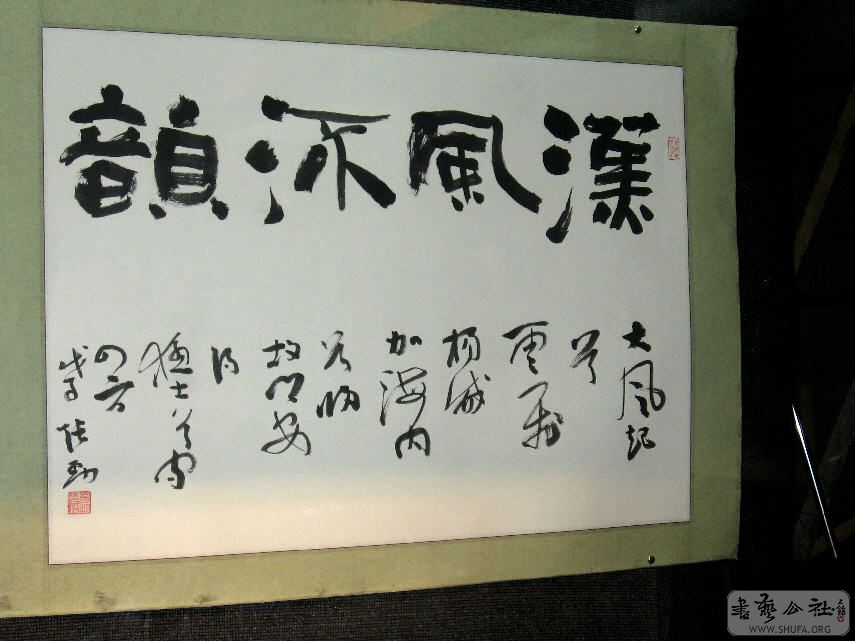 漢風沛韻
大風起
兮
雲飛
揚威
加海内
兮歸
故鄉安
得
猛士兮守
四方
戊子 張
書藝公社
WWW.SHUFA.ORG